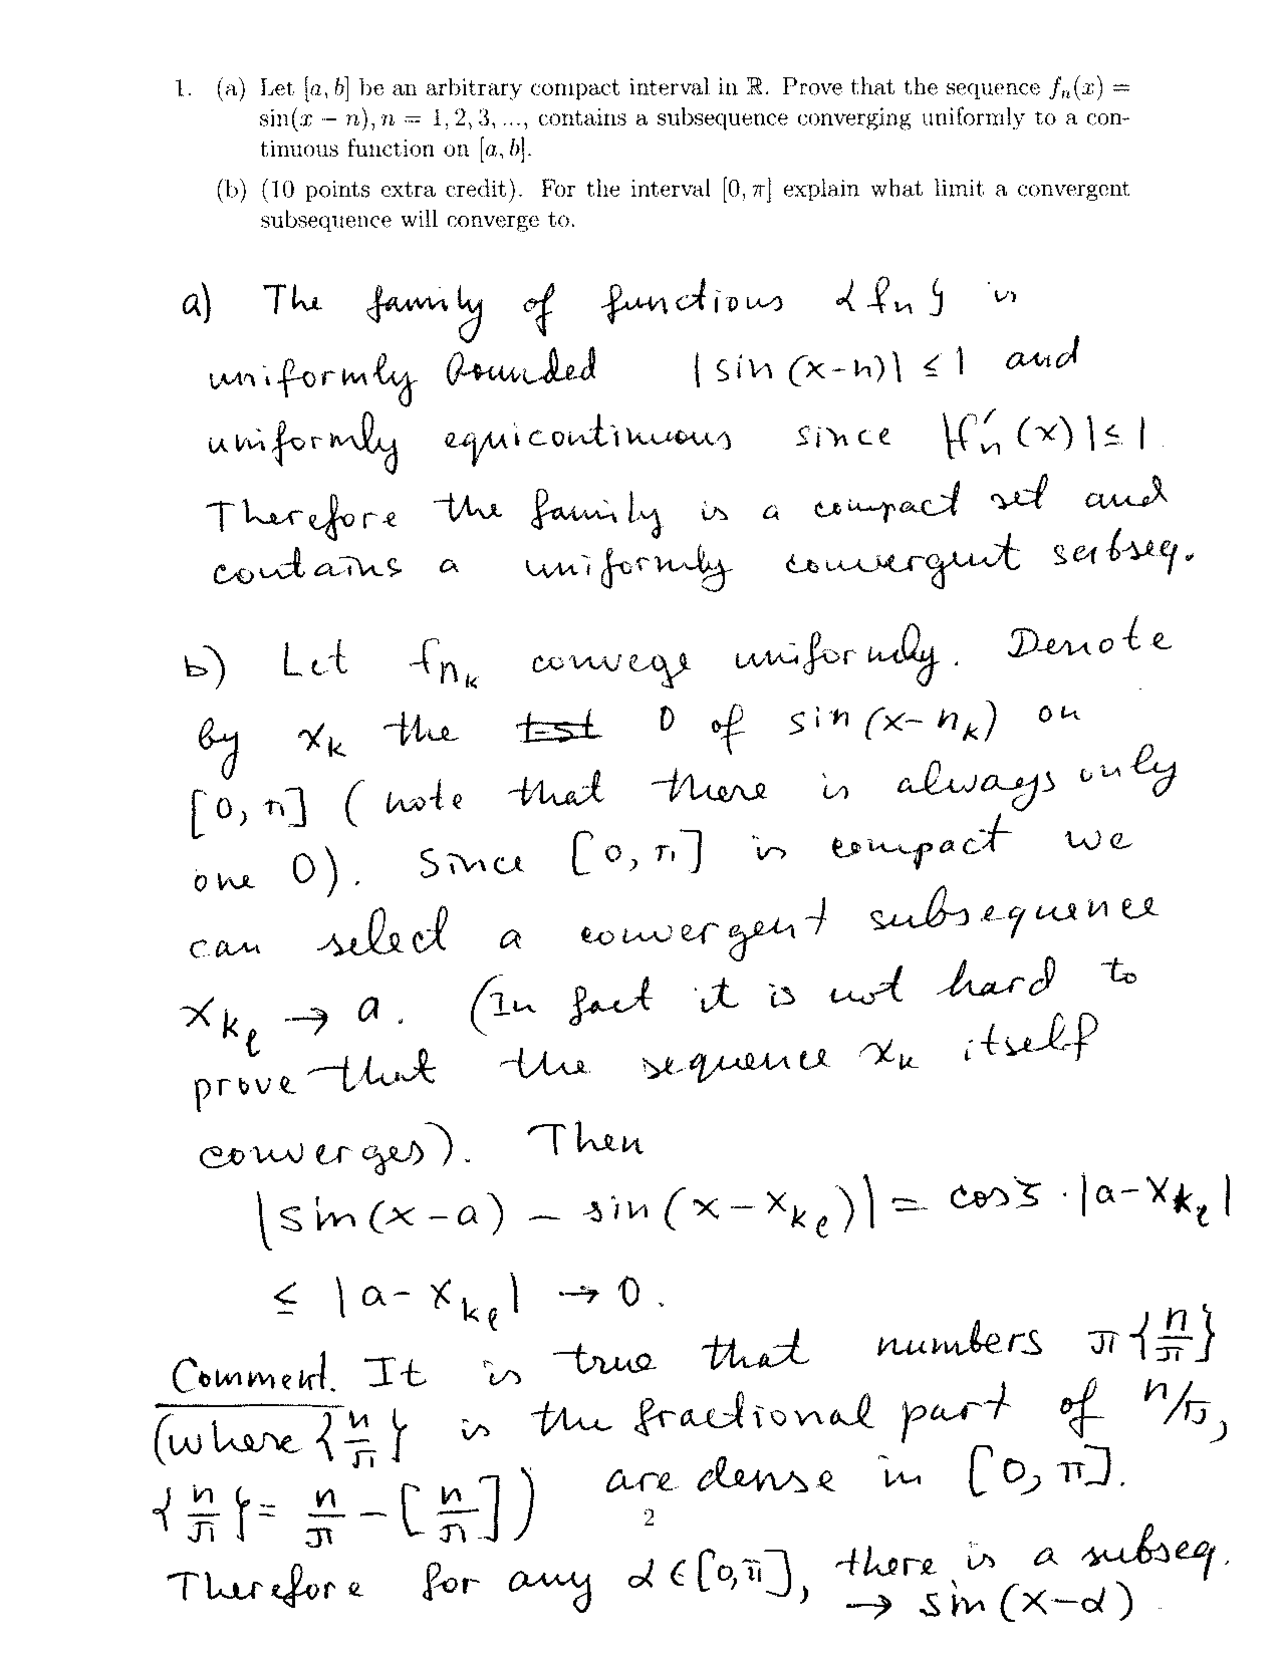 1. (a) Let [a, b] be an arbitrary compact interval in ℝ. Prove that the sequence fₙ(x) =
sin(x − n), n = 1, 2, 3, ..., contains a subsequence converging uniformly to a con-
tinuous function on [a, b].
(b) (10 points extra credit). For the interval [0, π] explain what limit a convergent
subsequence will converge to.
a) The family of functions {fₙ} is
uniformly bounded |sin (x-n)| ≤ 1 and
uniformly equicontinuous since |f'ₙ(x)| ≤ 1
Therefore the family is a compact set and
contains a uniformly convergent subseq.
b) Let f_{n_k} convege uniformly. Denote
by x_k the 0 of sin (x-n_k) on
[0, π] (note that there is always only
one 0). Since [0, π] is compact we
can select a convergent subsequence
x_{k_ℓ} → a. (In fact it is not hard to
prove that the sequence x_k itself
converges). Then
|sin(x-a) - sin(x-x_{k_ℓ})| = cos ξ · |a-x_{k_ℓ}|
≤ |a-x_{k_ℓ}| → 0.
Comment. It is true that numbers π{n/π}
(where {n/π} is the fractional part of n/π,
{n/π} = n/π - [n/π]) are dense in [0, π].
2
Therefore for any α ∈ [0, π], there is a subseq.
→ sin (x-α)